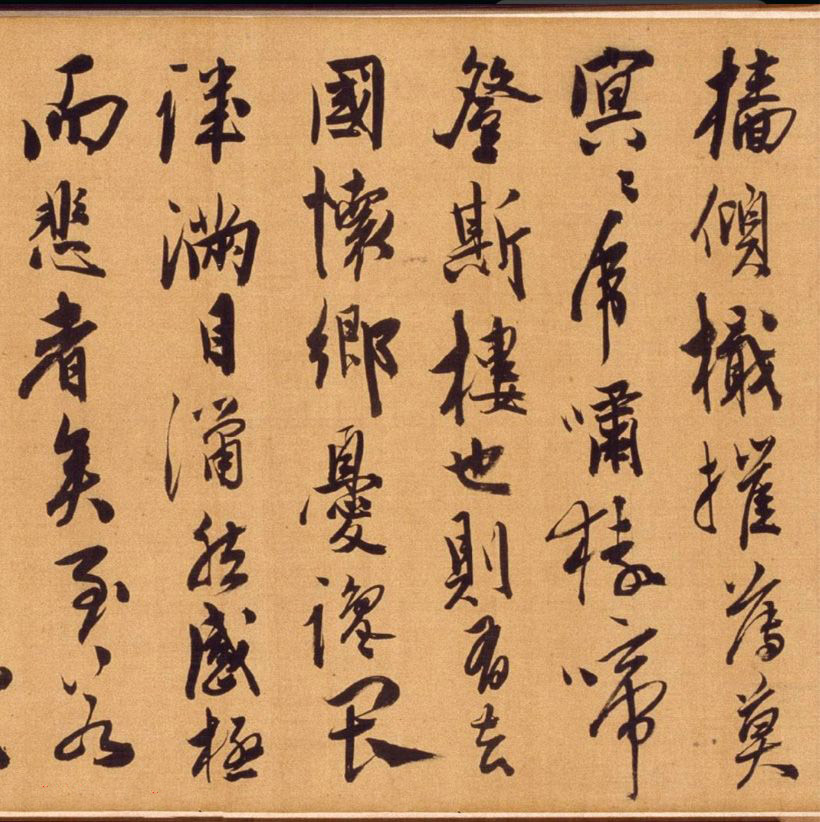 檣傾檝摧薄莫
冥〻虎嘯猿啼
登斯樓也則有去
國懷鄉憂讒畏
譏滿目瀟然感極
而悲者矣至若